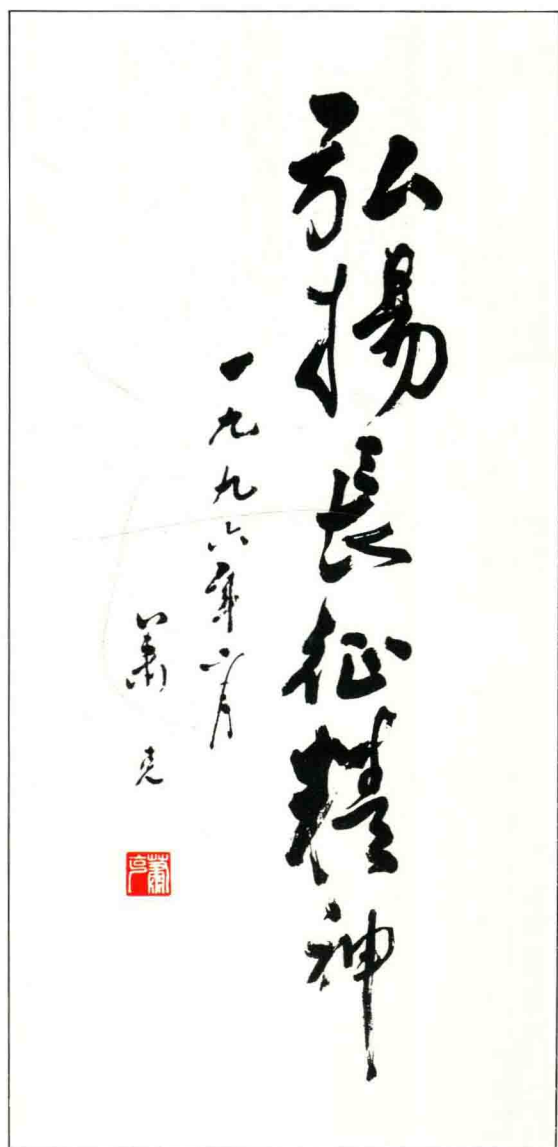 弘揚長征精神
一九九六年六月
萧克
蕭克